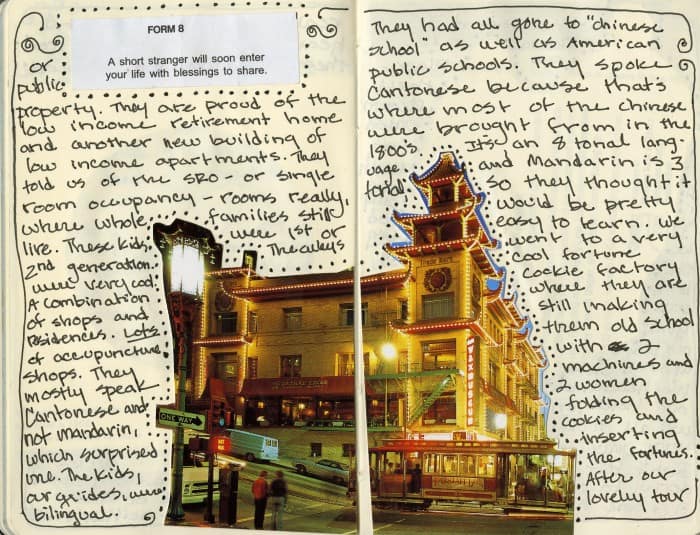 FORM 8
A short stranger will soon enter
your life with blessings to share.
or
public
property. They are proud of the
low income retirement home
and another new building of
low income apartments. They
told us of the SRO - or single
room occupancy - rooms really,
where whole families still
live. These kids, were 1st or
2nd generation. The alleys
were very cool.
A combination
of shops and
residences. Lots
of accupuncture
shops. They
mostly speak
Cantonese and
not mandarin,
which surprised
me. The kids,
our guides, were
bilingual.
ONE WAY
They had all gone to "chinese
school" as well as American
public schools. They spoke
Cantonese because that's
where most of the chinese
were brought from in the
1800's. Its an 8 tonal lang-
uage and Mandarin is 3
tonal so they thought it
would be pretty
easy to learn. We
went to a very
cool fortune
cookie factory
where they are
still making
them old school
with 2
machines and
2 women
folding the
cookies and
inserting
the fortunes.
After our
lovely tour
Trade Mark
WAX MUSEUM